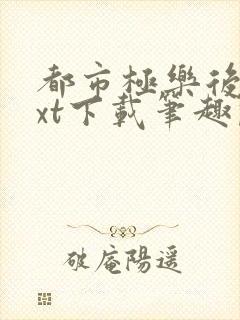 都市極樂後
xt下載筆趣
破庵陽遥